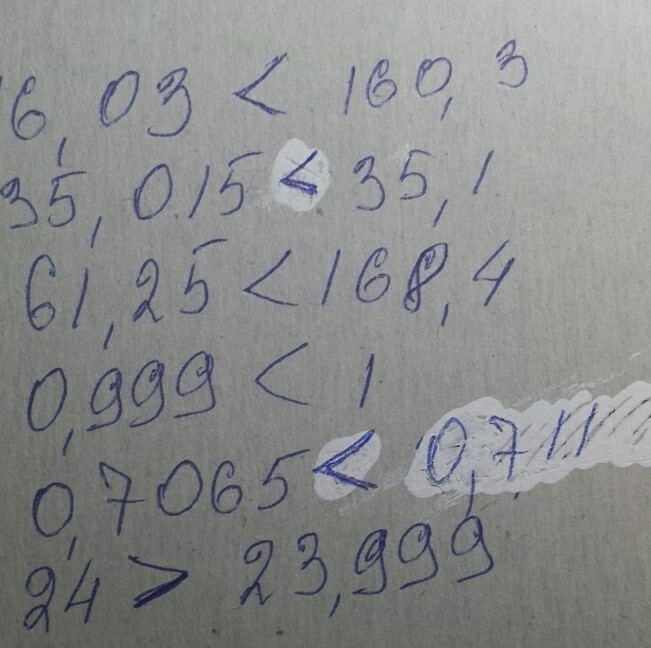 16,03 < 160,3
35,015 < 35,1
61,25 < 168,4
0,999 < 1
0,7065 < 0,711
24 > 23,999